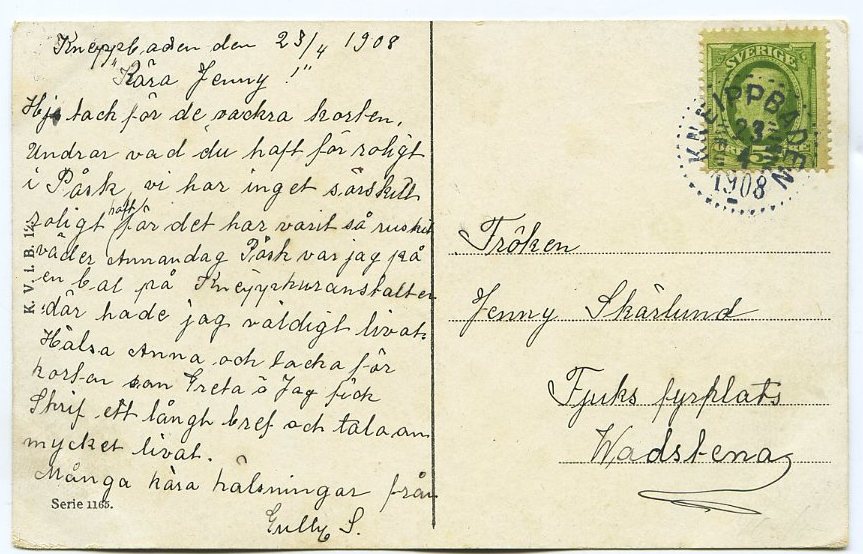 Kneippbaden den 23/4 1908
"Kära Jenny!"
Hj tack för de vackra korten.
Undrar vad du haft för roligt
i Påsk, vi har inget särskilt
roligt haft för det har varit så ruskit
väder Annandag Påsk var jag på
en bal på Kneippkuranstalten
där hade jag väldigt livat.
Hälsa Anna och tacka för
korten som Greta o Jag fick
Skrif ett långt bref och tala om
mycket livat.
Många kära hälsningar från
Gully S.
K. V. i. B. 12.
Serie 1165.
SVERIGE
KNEIPPBADEN
23
4
1908
Fröken
Jenny Skärlund
Fjuks fyrplats
Wadstena